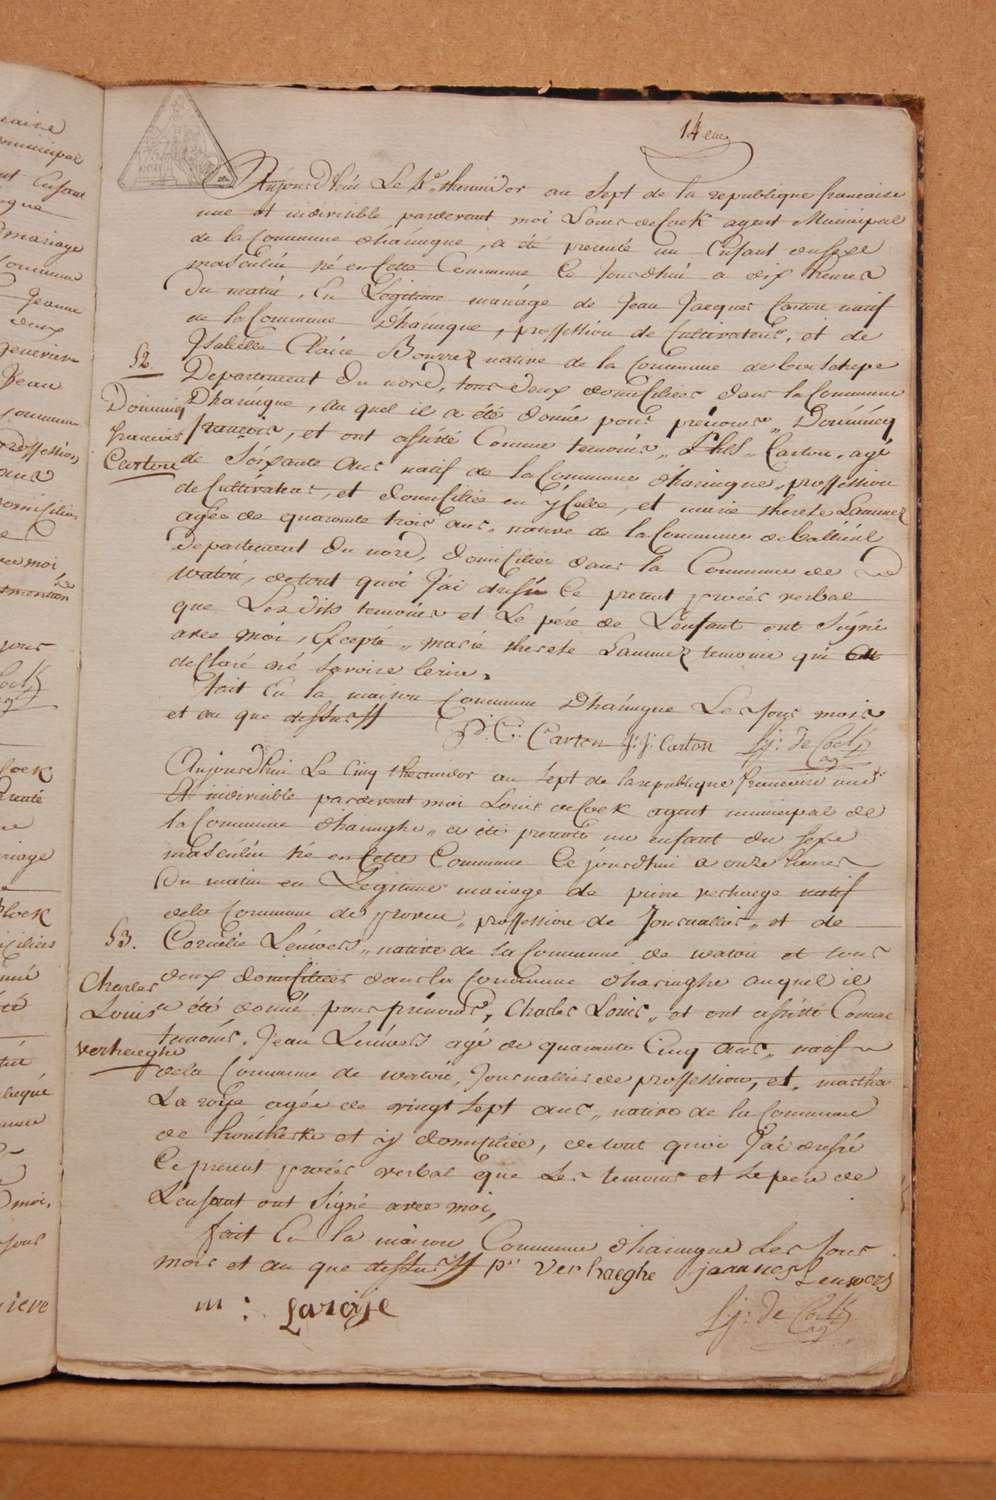 14eme
Aujourdhui Le 4e thermidor an Sept de la republique francaise
une et indivisible pardevant moi Louis de Cock agent Municipal
de la Commune dharingue, a été presenté un Enfant du sexe
masculin né en Cette Commune Ce Jourdhui a dix heures
Du matin, En Légitime mariage de Jean Jacques Carton natif
de la Commune Dharingue, proffession de Cultivateur, et de
Isabelle Claire Bourrez native de la Commune de
Departement du nord, tous deux domiciliés dans la Commune
Dharingue, au quel il a été donné pour prénoms, Dominiq
francois, et ont assisté Comme temoins, Carton, agé
de Soixante ans natif de la Commune dharingue, proffession
de Cultivateur, et domicilié en yCelle, et marie therese Lammez
agée de quarante trois ans, native de la Commune de bailleul
departement du nord, domiciliée dans la Commune de
watou, de tout quoi J'ai dressé Ce present procés verbal
que Les dits temoins et Le pére de L'enfant ont Signé
avec moi, Excepté, marie therese Lammez temoine qui
declaré né Savoire Ecrire.
fait En la maison Commune Dharingue Les Jour mois
et an que dessus
P: C: Carton J: J: Carton L: J: de Cock
ag
52.
Dominiq
francois
Carton
Aujourdhui Le Cinq thermidor an Sept de la republique francaise une
et indivisible pardevant moi Louis de Cock agent municipal de
la Commune dharinghe, a été presenté un enfant du sexe
masculin né en Cette Commune Ce jourdhui a onze heures
Du matin en Legitime mariage de pierre verhaege natif
de la Commune de proven, proffession de Journallier, et de
Cornelie Leuwers, native de la Commune de watou et tous
deux domiciliés dans la Commune dharinghe auquel il
a été donné pour prénoms, Charles Louis, et ont assisté Comme
temoins, Jean Leuwers agé de quarante Cinq ans, natif
de la Commune de watou, Journallier de proffession, et, martha
La roije agée de vingt Sept ans, native de la Commune
de houtkerke et iy domiciliée, de tout quoi J'ai dressé
Ce present procés verbal que Les temoins et Le pere de
L'enfant ont Signé avec moi,
fait En la maison Commune dharingue Les Jour
mois et an que dessus pr verhaeghe joannes Leuwers
m: Laroije
L: J: de Cock
ag
53.
Charles
Louis
verhaeghe